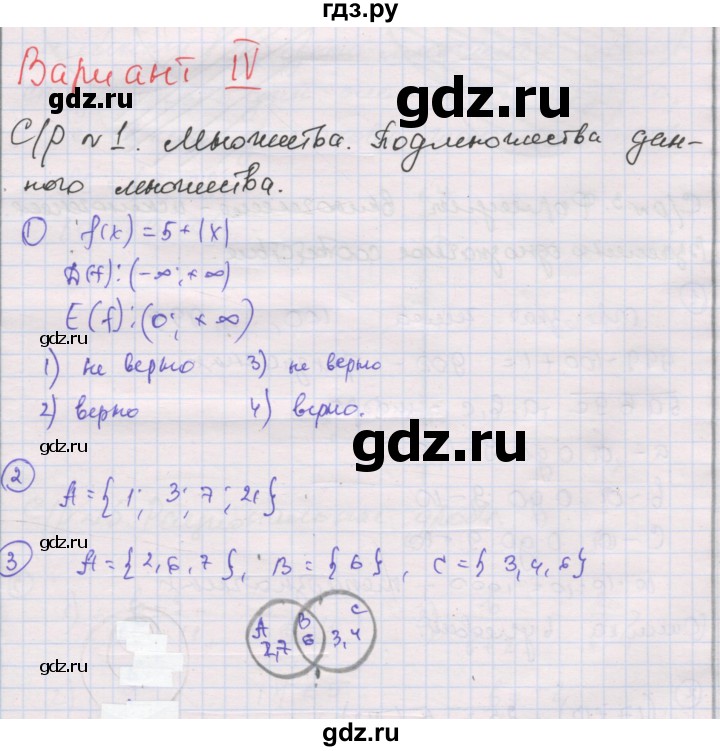 гдз.ру
Вариант IV
gdz.ru
С/р №1. Множества. Подмножества дан-
ного множества.
1 f(x) = 5 + |x|
D(f): (-∞; +∞)
E(f): (0; +∞)
gdz.ru
gdz.ru
1) не верно 3) не верно
2) верно 4) верно.
gdz.ru
gdz.ru
2 A = {1; 3; 7; 21}
gdz.ru
3 A = {2, 6, 7}, B = {6}, C = {3, 4, 6}
A B C
2,7 6 3,4
gdz.ru
gdz.ru